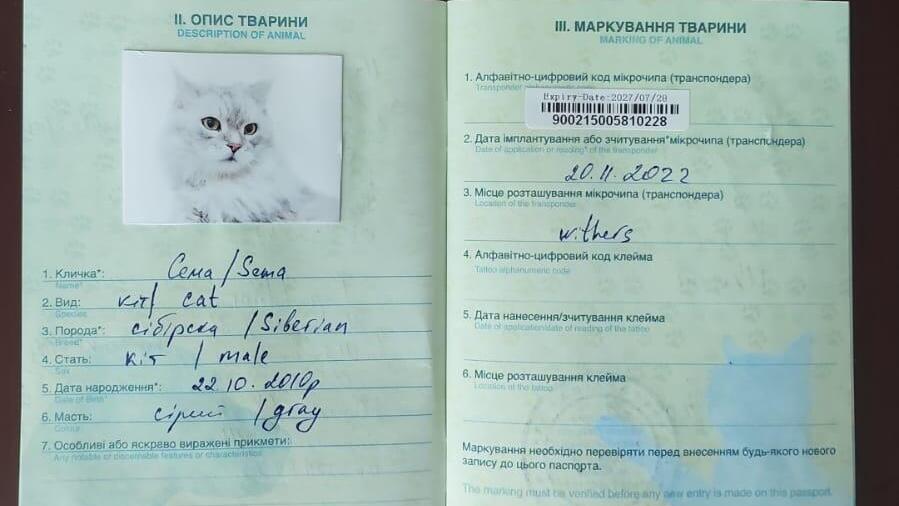 II. ОПИС ТВАРИНИ
DESCRIPTION OF ANIMAL
1. Кличка*: Сема / Sema
Name*
2. Вид: кіт/ cat
Species
3. Порода*: сібірска / Siberian
Breed*
4. Стать: кіт / male
Sex
5. Дата народження*: 22.10.2010р
Date of Birth*
6. Масть: сірий / gray
Colour
7. Особливі або яскраво виражені прикмети:
Any notable or discernable features or characteristics
III. МАРКУВАННЯ ТВАРИНИ
MARKING OF ANIMAL
1. Алфавітно-цифровий код мікрочипа (транспондера)
Transponder alphanumeric code
Expiry-Date:2027/07/28
900215005810228
2. Дата імплантування або зчитування*мікрочипа (транспондера)
Date of application or reading* of the transponder
20.11.2022
3. Місце розташування мікрочипа (транспондера)
Location of the transponder
withers
4. Алфавітно-цифровий код клейма
Tattoo alphanumeric code
5. Дата нанесення/зчитування клейма
Date of application/date of reading of the tattoo
6. Місце розташування клейма
Location of the tattoo
Маркування необхідно перевіряти перед внесенням будь-якого нового
запису до цього паспорта.
The marking must be verified before any new entry is made on this passport.